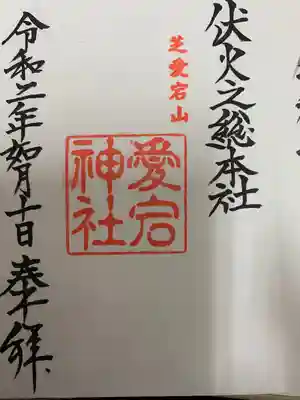 伏火之総本社
芝愛宕山
愛宕
神社
令和二年如月十日
奉拝